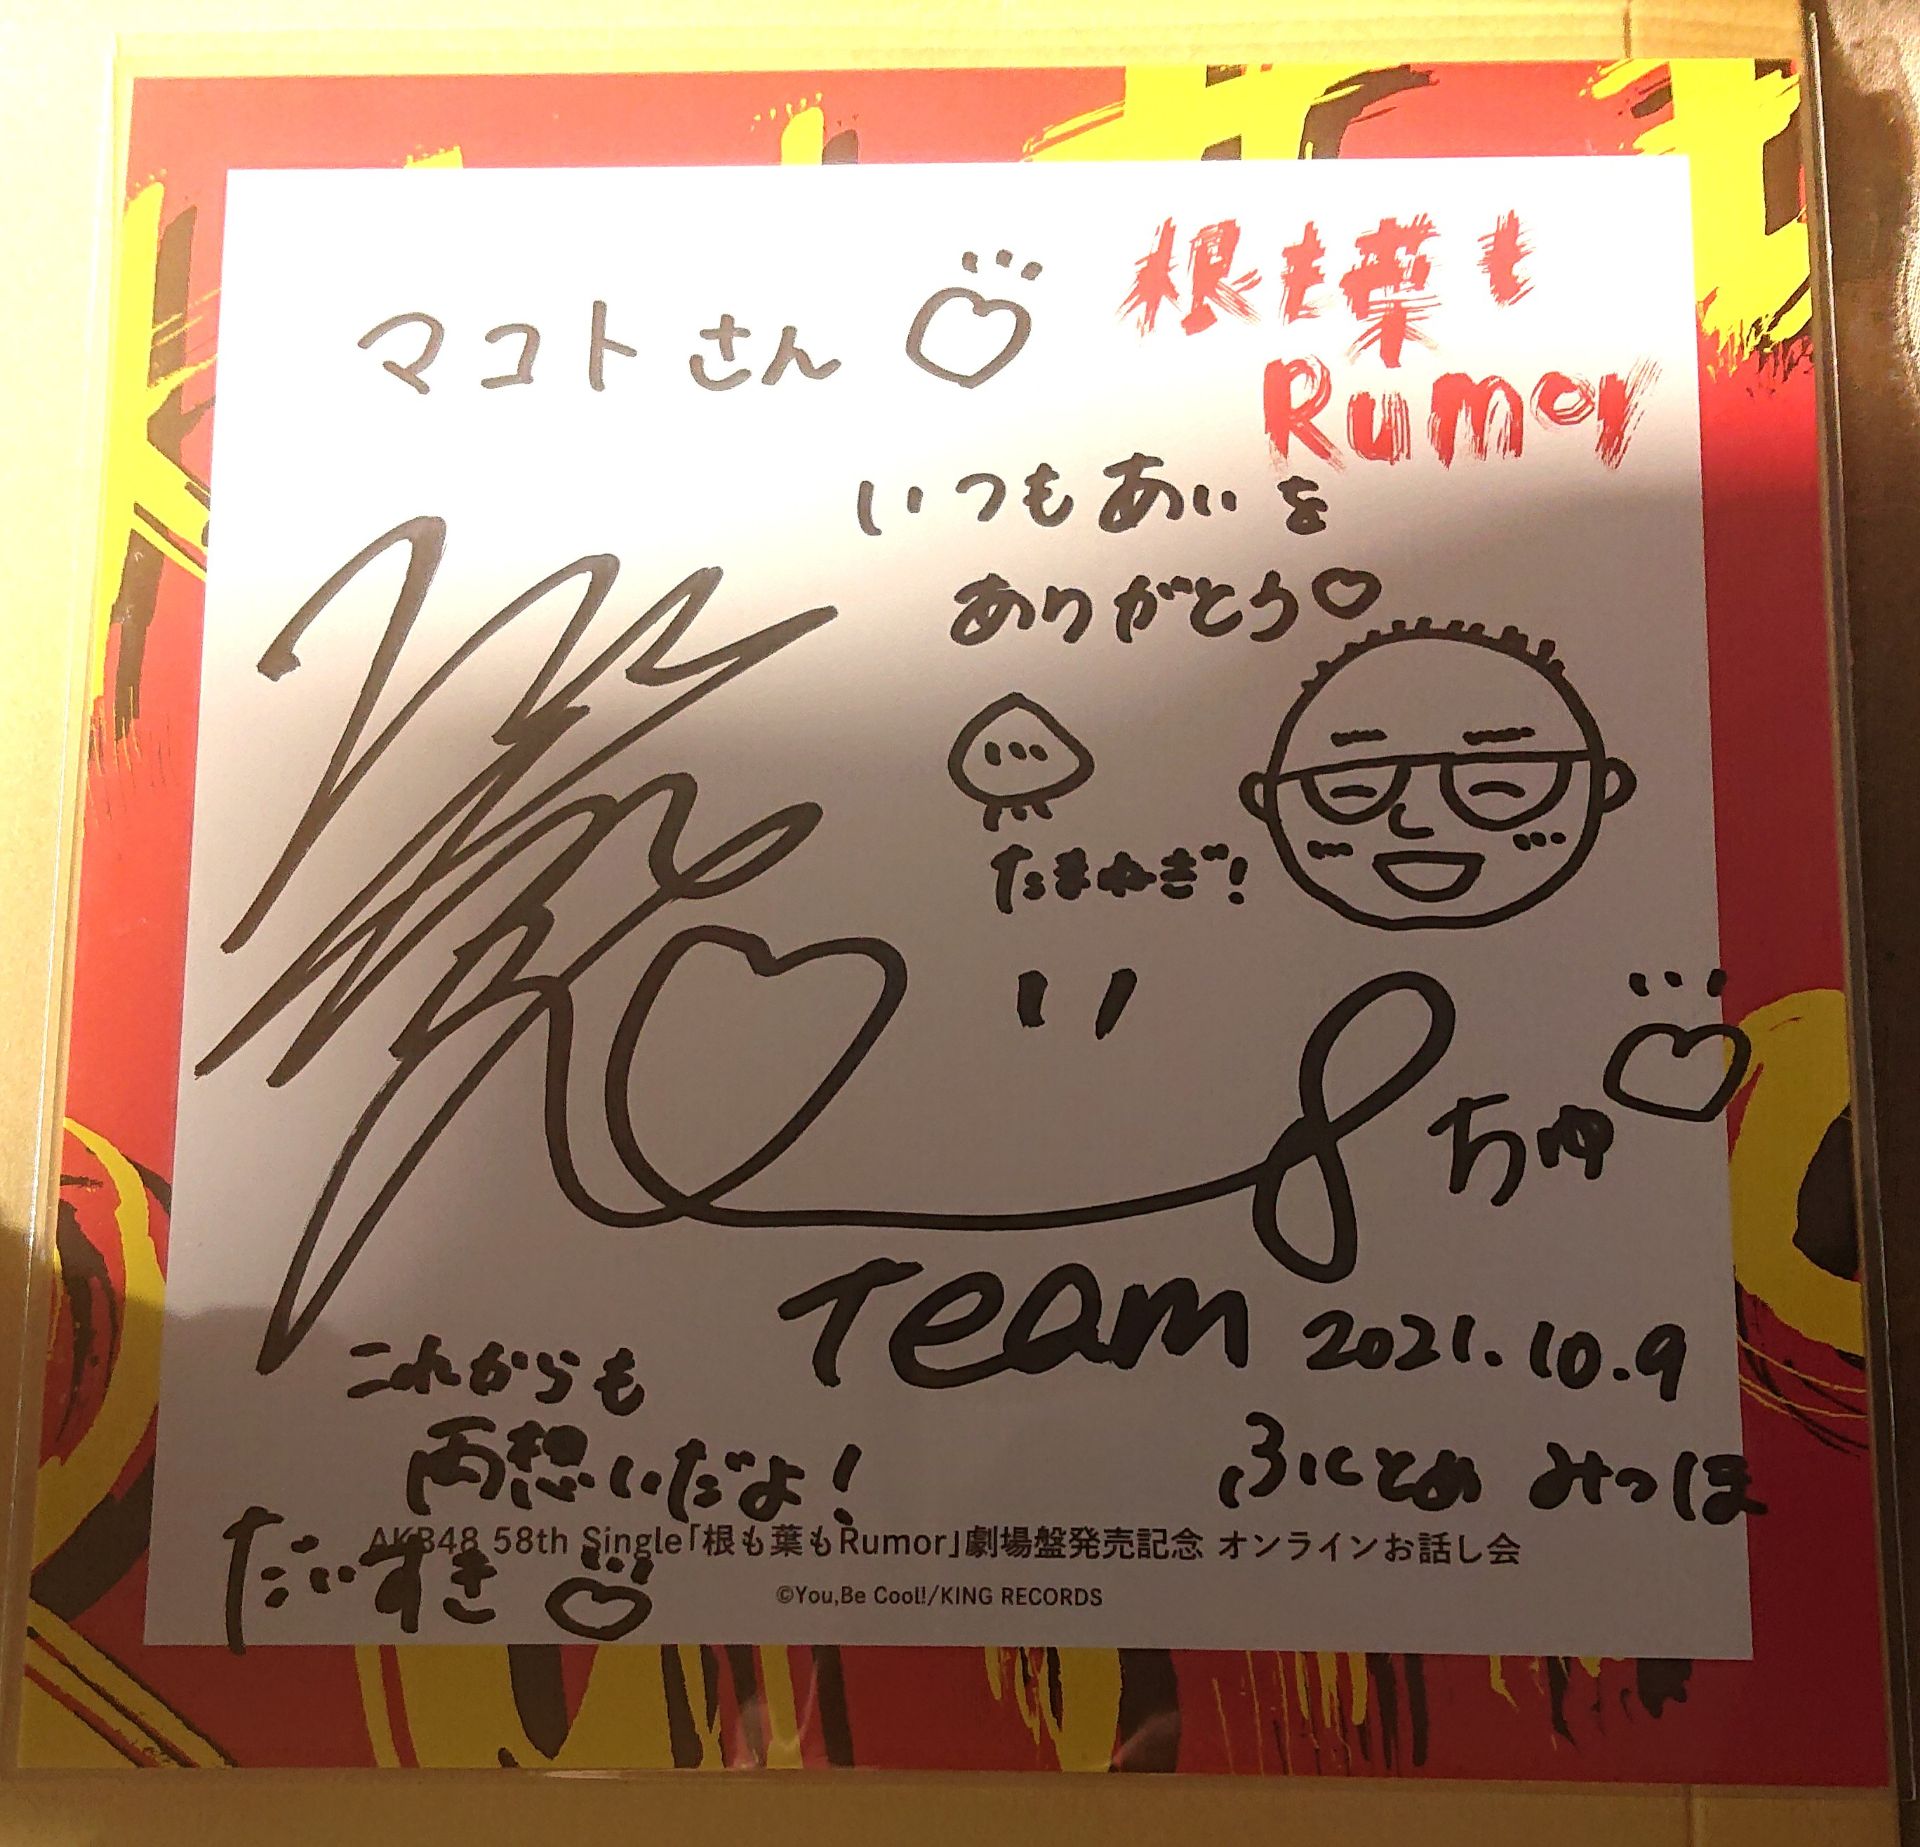 マコトさん
根も葉も
Rumor
いつもあぃを
ありがとう
たまねぎ!
8
ちゅ
Team
2021.10.9
これからも
両想いだよ!
だいすき
ふにとめ みつほ
AKB48 58th Single「根も葉もRumor」劇場盤発売記念 オンラインお話し会
©You,Be Cool!/KING RECORDS